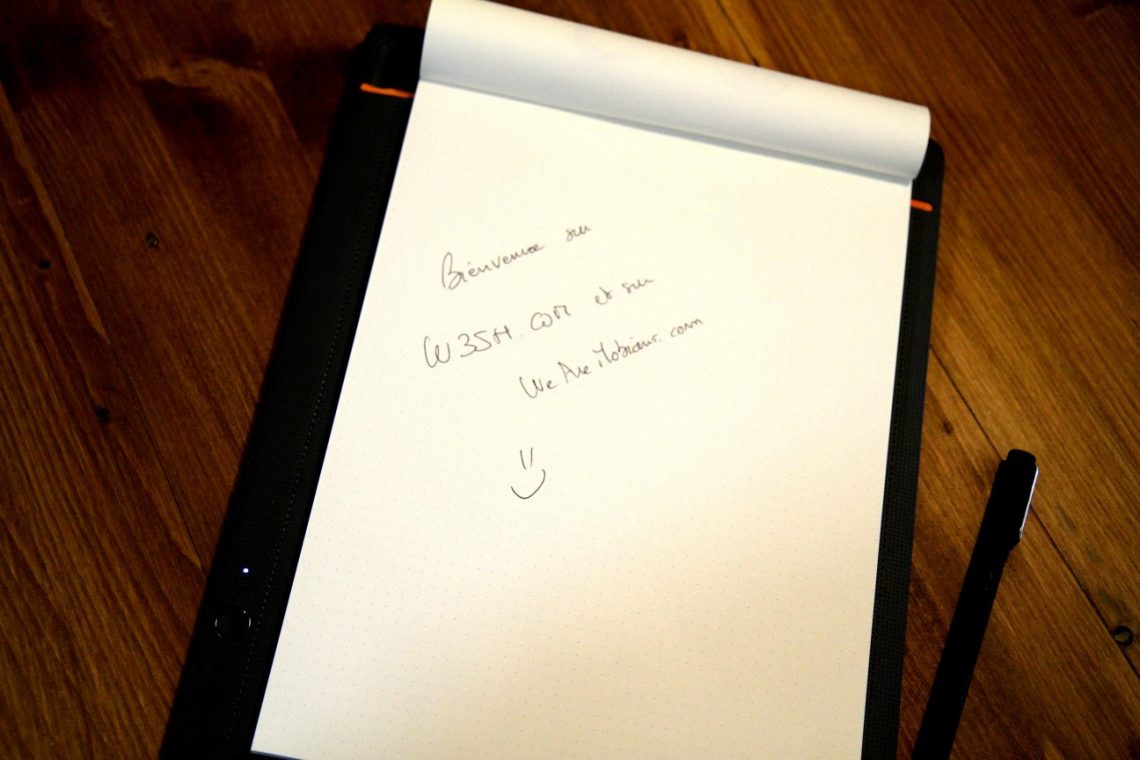 Bienvenue sur
W3SH.COM et sur
WeAreMobians.com